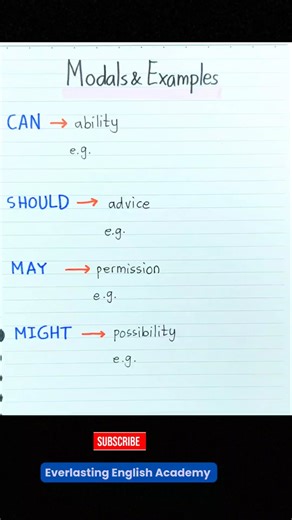 Modals & Examples
CAN → ability
e.g.
SHOULD → advice
e.g.
MAY → permission
e.g.
MIGHT → possibility
e.g.
SUBSCRIBE
Everlasting English Academy